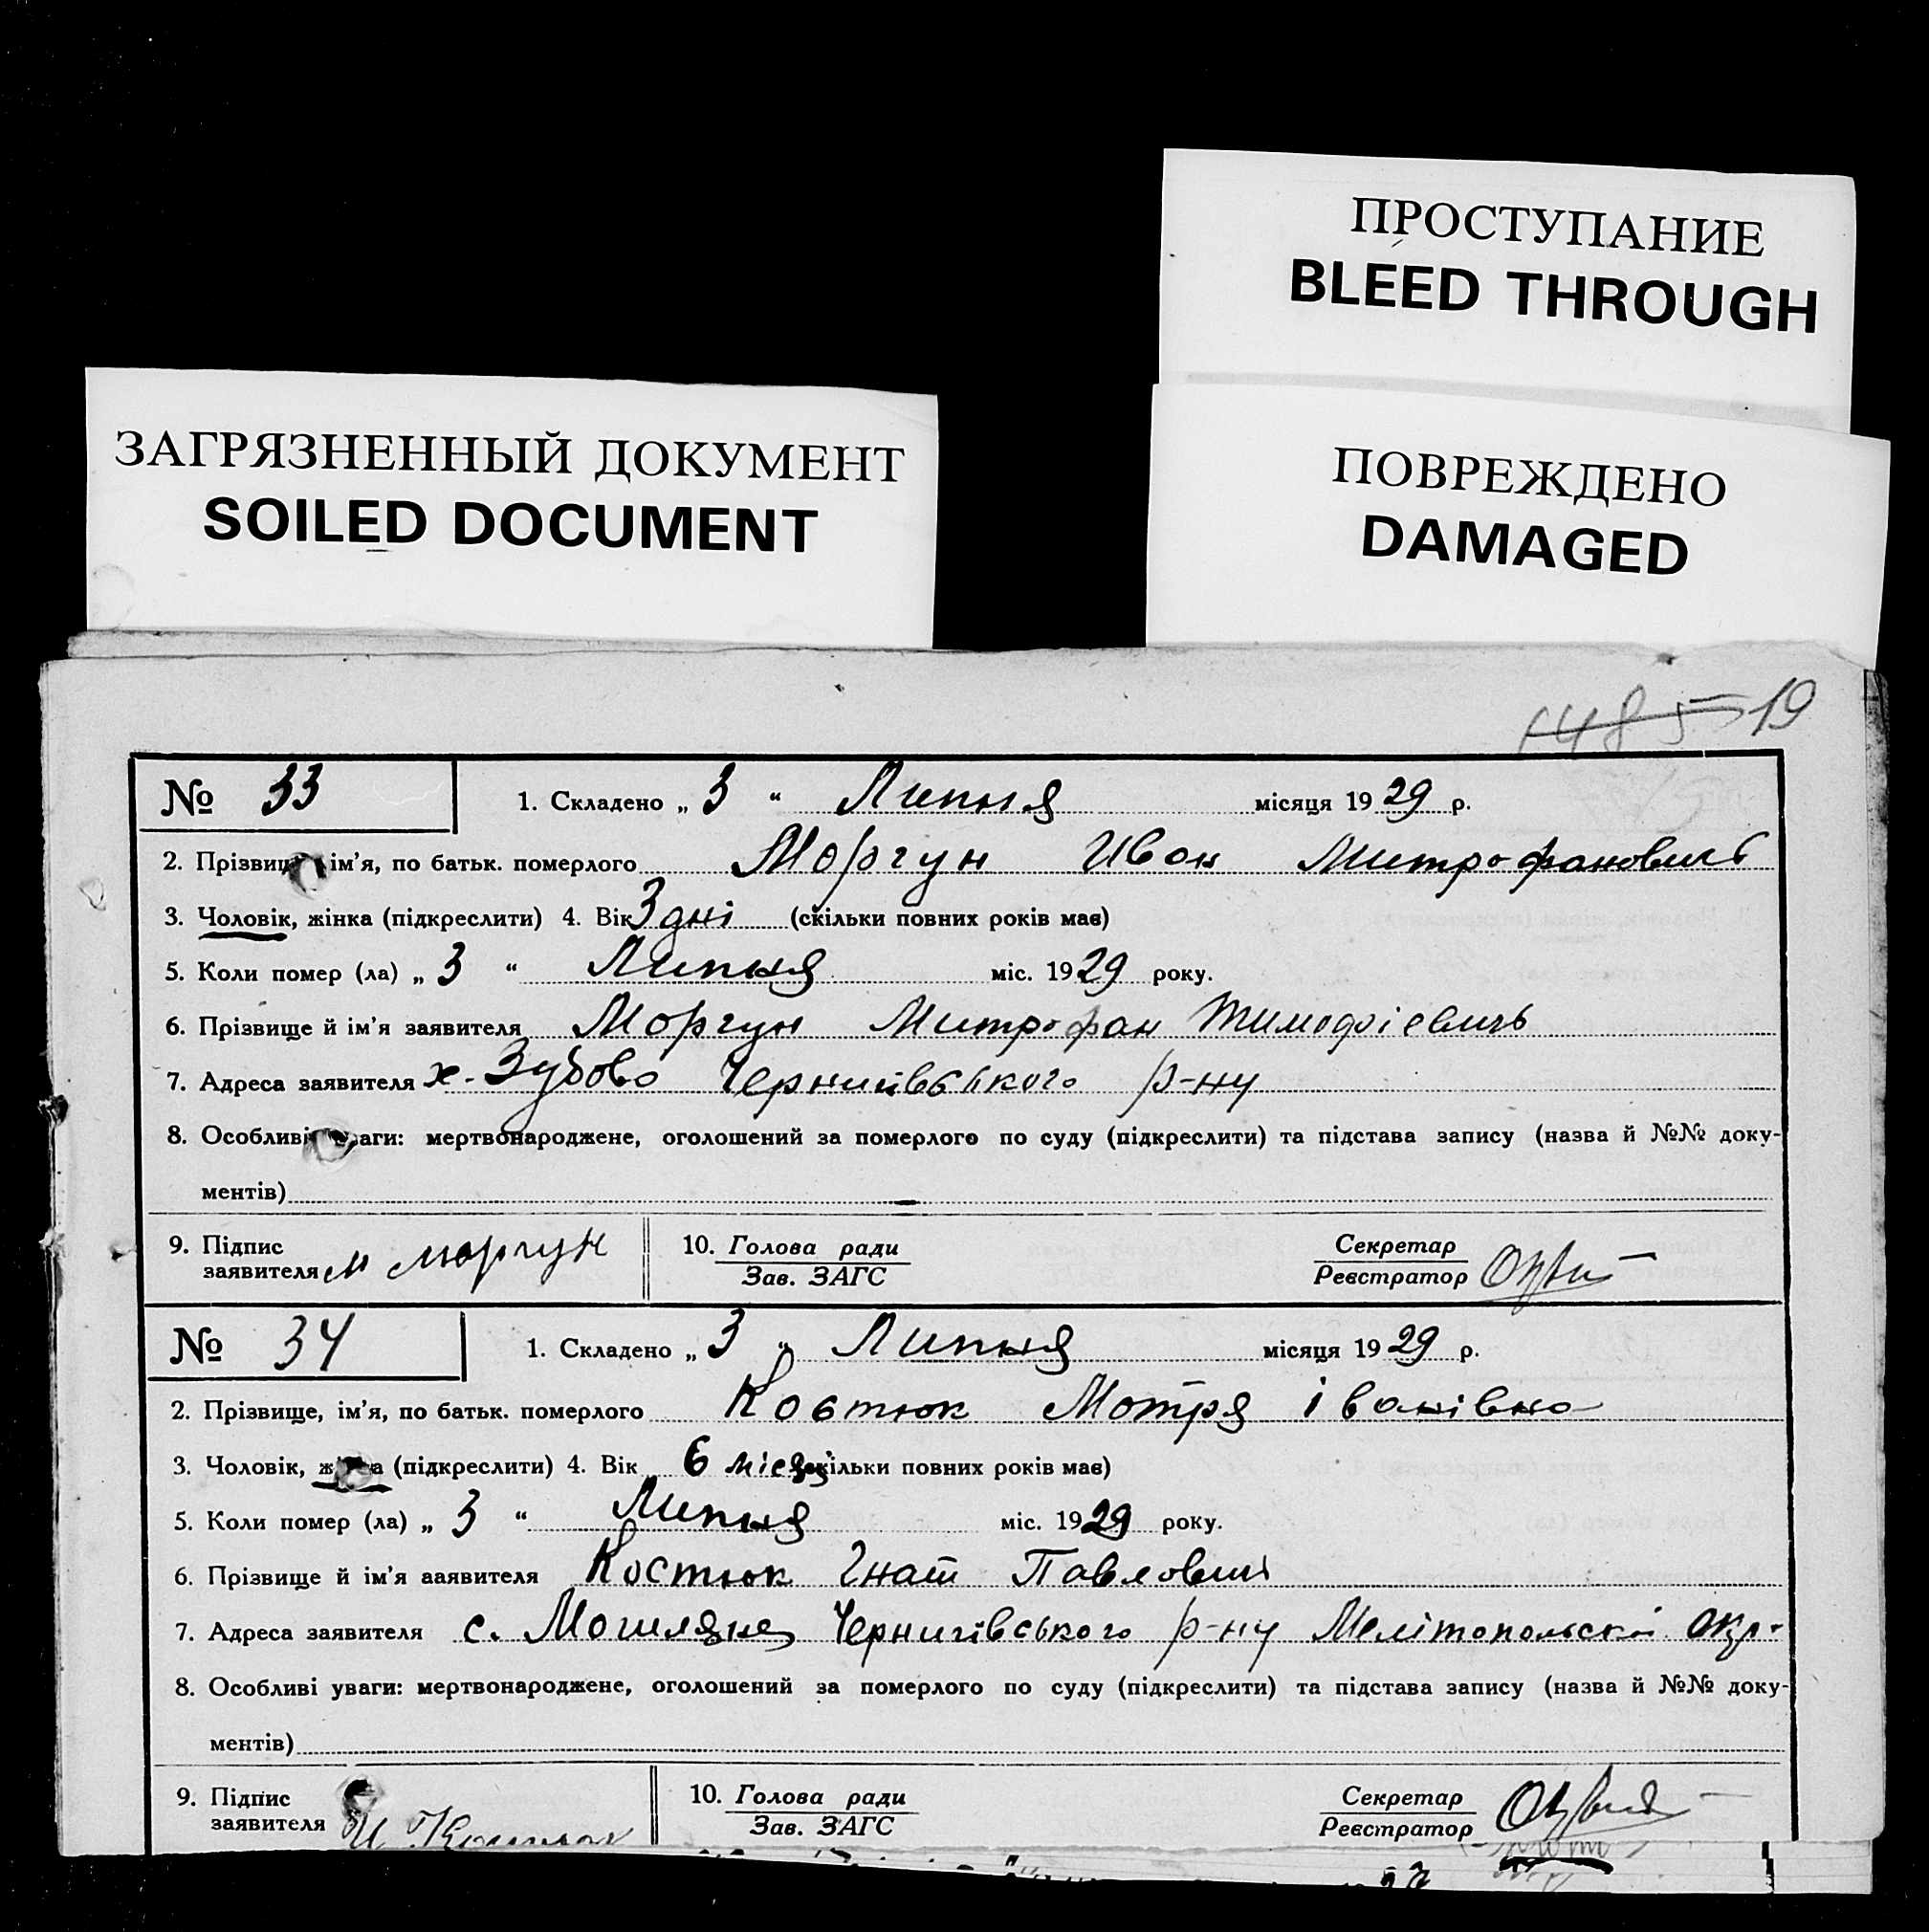 ПРОСТУПАНИЕ
BLEED THROUGH
ЗАГРЯЗНЕННЫЙ ДОКУМЕНТ
SOILED DOCUMENT
ПОВРЕЖДЕНО
DAMAGED
1485 19
№ 33 1. Складено „ 3 “ Липня місяця 1929 р.
2. Прізвище, ім’я, по батьк. померлого Моргун Иван Митрофановичь
3. Чоловік, жінка (підкреслити) 4. Вік 3 дні (скільки повних років має)
5. Коли помер (ла) „ 3 “ Липня міс. 1929 року.
6. Прізвище й ім’я заявителя Моргун Митрофан Тимофіевичь
7. Адреса заявителя х. Зубово Чернигівського р-ну
8. Особливі уваги: мертвонароджене, оголошений за померлого по суду (підкреслити) та підстава запису (назва й №№ доку-
ментів) —
9. Підпис заявителя М Моргун 10. Голова ради Зав. ЗАГС Секретар Реєстратор
№ 34 1. Складено „ 3 “ Липня місяця 1929 р.
2. Прізвище, ім’я, по батьк. померлого Костюк Мотря Іванівна
3. Чоловік, жінка (підкреслити) 4. Вік 6 місяц (скільки повних років має)
5. Коли помер (ла) „ 3 “ Липня міс. 1929 року.
6. Прізвище й ім’я ааявителя Костюк Гнат Павлович
7. Адреса заявителя с. Могиляне Чернигівського р-ну Мелітопольскої Окр.
8. Особливі уваги: мертвонароджене, оголошений за померлого по суду (підкреслити) та підстава запису (назва й №№ доку-
ментів)
9. Підпис заявителя И Костюк 10. Голова ради Зав. ЗАГС Секретар Реєстратор